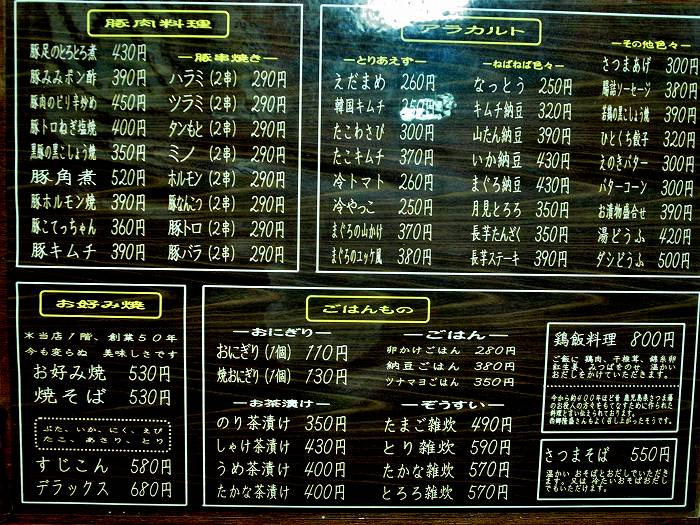 豚肉料理
豚足のとろとろ煮 430円
豚みみポン酢 390円
豚肉のピリ辛炒め 450円
豚トロねぎ塩焼 400円
黒豚の黒こしょう焼 350円
豚角煮 520円
豚ホルモン焼 390円
豚こてっちゃん 360円
豚キムチ 390円
―豚串焼き―
ハラミ(2串) 290円
ツラミ(2串) 290円
タンもと(2串) 290円
ミノ(2串) 290円
ホルモン(2串) 290円
豚なんこつ(2串) 290円
豚トロ(2串) 290円
豚バラ(2串) 290円
アラカルト
―とりあえず―
えだまめ 260円
韓国キムチ 250円
たこわさび 300円
たこキムチ 370円
冷トマト 260円
冷やっこ 250円
まぐろの山かけ 370円
まぐろのユッケ風 380円
―ねばねば色々―
なっとう 250円
キムチ納豆 320円
山たん納豆 390円
いか納豆 430円
まぐろ納豆 430円
月見とろろ 350円
長芋たんざく 350円
長芋ステーキ 390円
―その他色々―
さつまあげ 300円
腸詰ソーセージ 380円
若鶏の黒こしょう焼 390円
ひとくち餃子 320円
えのきバター 300円
バターコーン 300円
お漬物盛合せ 390円
湯どうふ 420円
ダシどうふ 500円
お好み焼
※当店1階、創業50年
今も変らぬ 美味しさです
お好み焼 530円
焼そば 530円
ぶた、いか、にく、えび
たこ、あさり、とり
すじこん 580円
デラックス 680円
ごはんもの
―おにぎり―
おにぎり(1個) 110円
焼おにぎり(1個) 130円
―お茶漬け―
のり茶漬け 350円
しゃけ茶漬け 430円
うめ茶漬け 400円
たかな茶漬け 400円
―ごはん―
卵かけごはん 280円
納豆ごはん 380円
ツナマヨごはん 350円
―ぞうすい―
たまご雑炊 490円
とり雑炊 590円
たかな雑炊 570円
とろろ雑炊 570円
鶏飯料理 800円
ご飯に 鶏肉、干椎茸、錦糸卵
紅生姜、みつばをのせ、温かい
おだしをかけていただきます。
今から約400年ほど昔 鹿児島県さつま藩
のお役人の方々をもてなすために作られた
料理と言い伝えられております。
西郷隆盛さんもよく召し上がったそうです。
さつまそば 550円
温かい おそばとおだしでいただき
ます。又は 冷たいおそばおだし
でもいただけます。